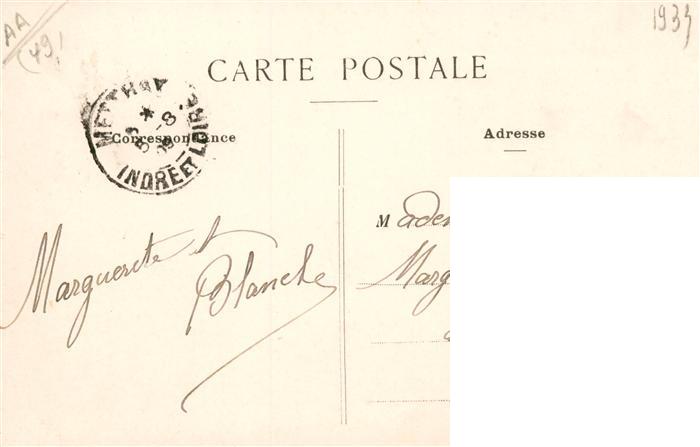 AA
(49)
1933
CARTE POSTALE
Correspondance
Adresse
METTRAY
5-8
09
INDRE ET LOIRE
Marguerite et
Blanche
Madem
Marg